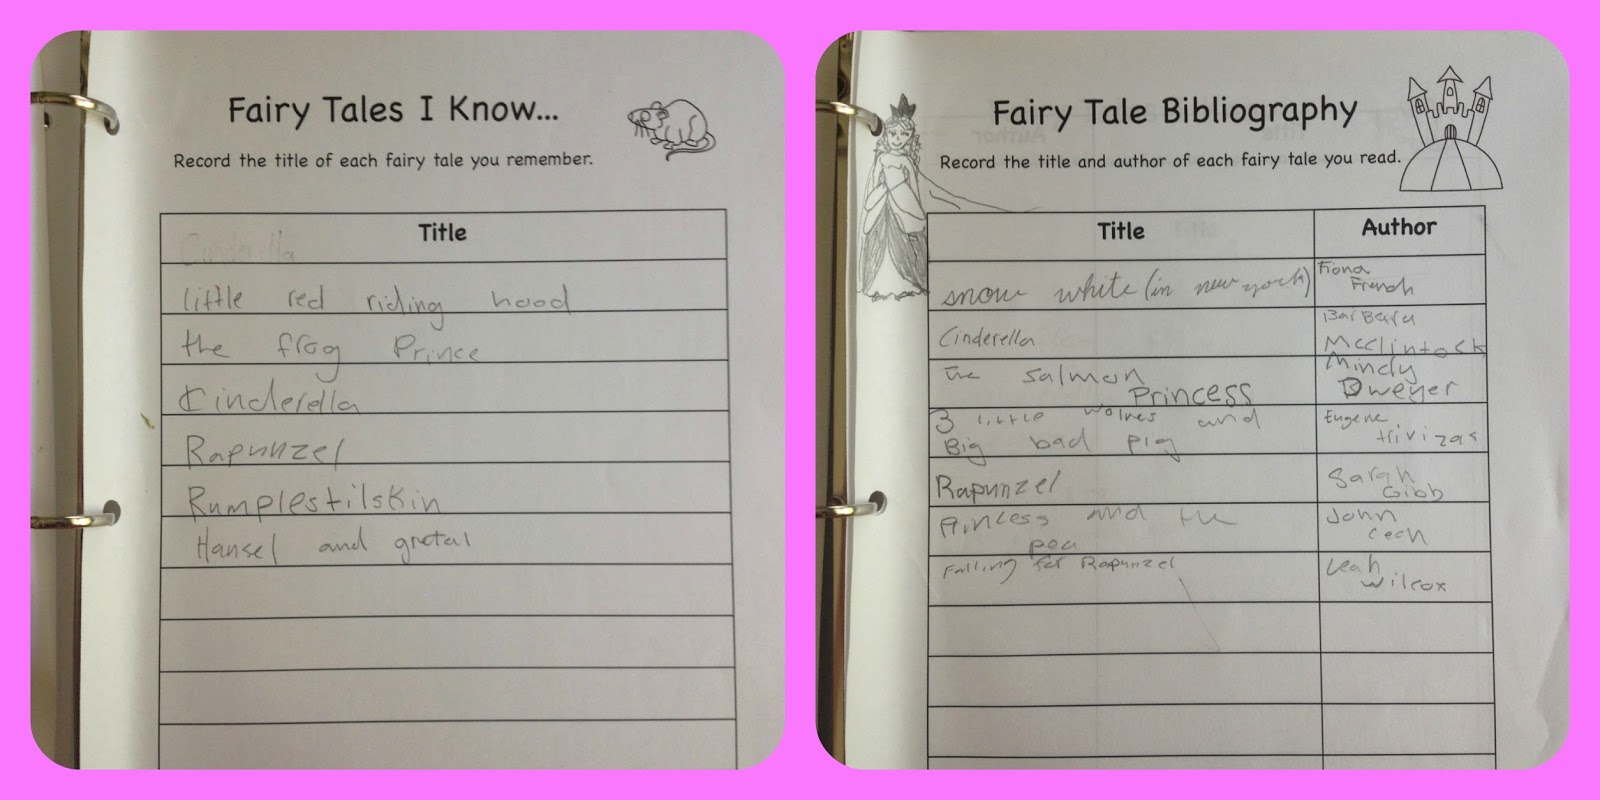 Fairy Tales I Know...
Record the title of each fairy tale you remember.
Title
Cinderella
little red riding hood
the frog Prince
Cinderella
Rapunzel
Rumplestilskin
Hansel and gretal
Fairy Tale Bibliography
Record the title and author of each fairy tale you read.
Title
Author
snow white (in new york)
Fiona
French
Cinderella
BarBara
Mcclintock
The Salmon
Princess
Mindy
Dweyer
3 little wolves and
Big bad pig
Eugene
trivizas
Rapunzel
Sarah
Gibb
Princess and the
pea
John
cech
Falling for Rapunzel
Leah
Wilcox